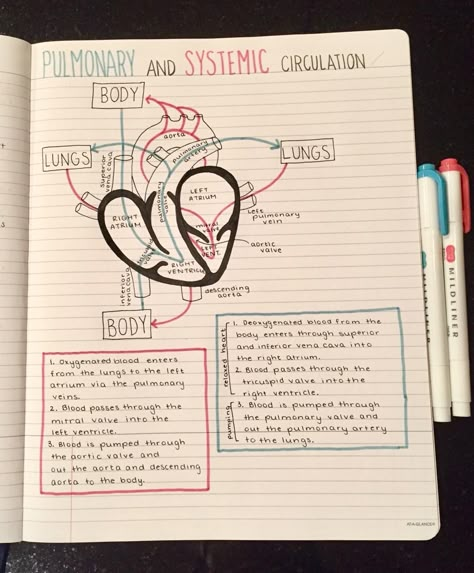 PULMONARY AND SYSTEMIC CIRCULATION
BODY
LUNGS
LUNGS
aorta
pulmonary artery
superior vena cava
pulmonary valve
LEFT ATRIUM
RIGHT ATRIUM
left pulmonary vein
mitral
aortic valve
LEFT VENT.
tricuspid valve
RIGHT VENTRICLE
inferior vena cava
descending aorta
BODY
1. Oxygenated blood enters
from the lungs to the left
atrium via the pulmonary
veins.
2. Blood passes through the
mitral valve into the
left ventricle.
3. Blood is pumped through
the aortic valve and
out the aorta and descending
aorta to the body.
relaxed heart
1. Deoxygenated blood from the
body enters through superior
and inferior vena cava into
the right atrium.
2. Blood passes through the
tricuspid valve into the
right ventricle.
pumping
3. Blood is pumped through
the pulmonary valve and
out the pulmonary artery
to the lungs.
MILDLINER
MILDLINER